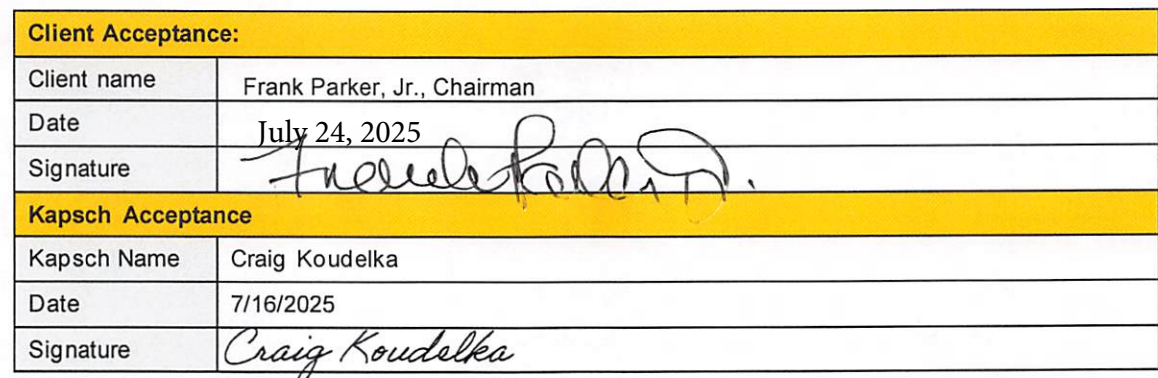 Client Acceptance:
Client name Frank Parker, Jr., Chairman
Date July 24, 2025
Signature Frank Parker Jr.
Kapsch Acceptance
Kapsch Name Craig Koudelka
Date 7/16/2025
Signature Craig Koudelka